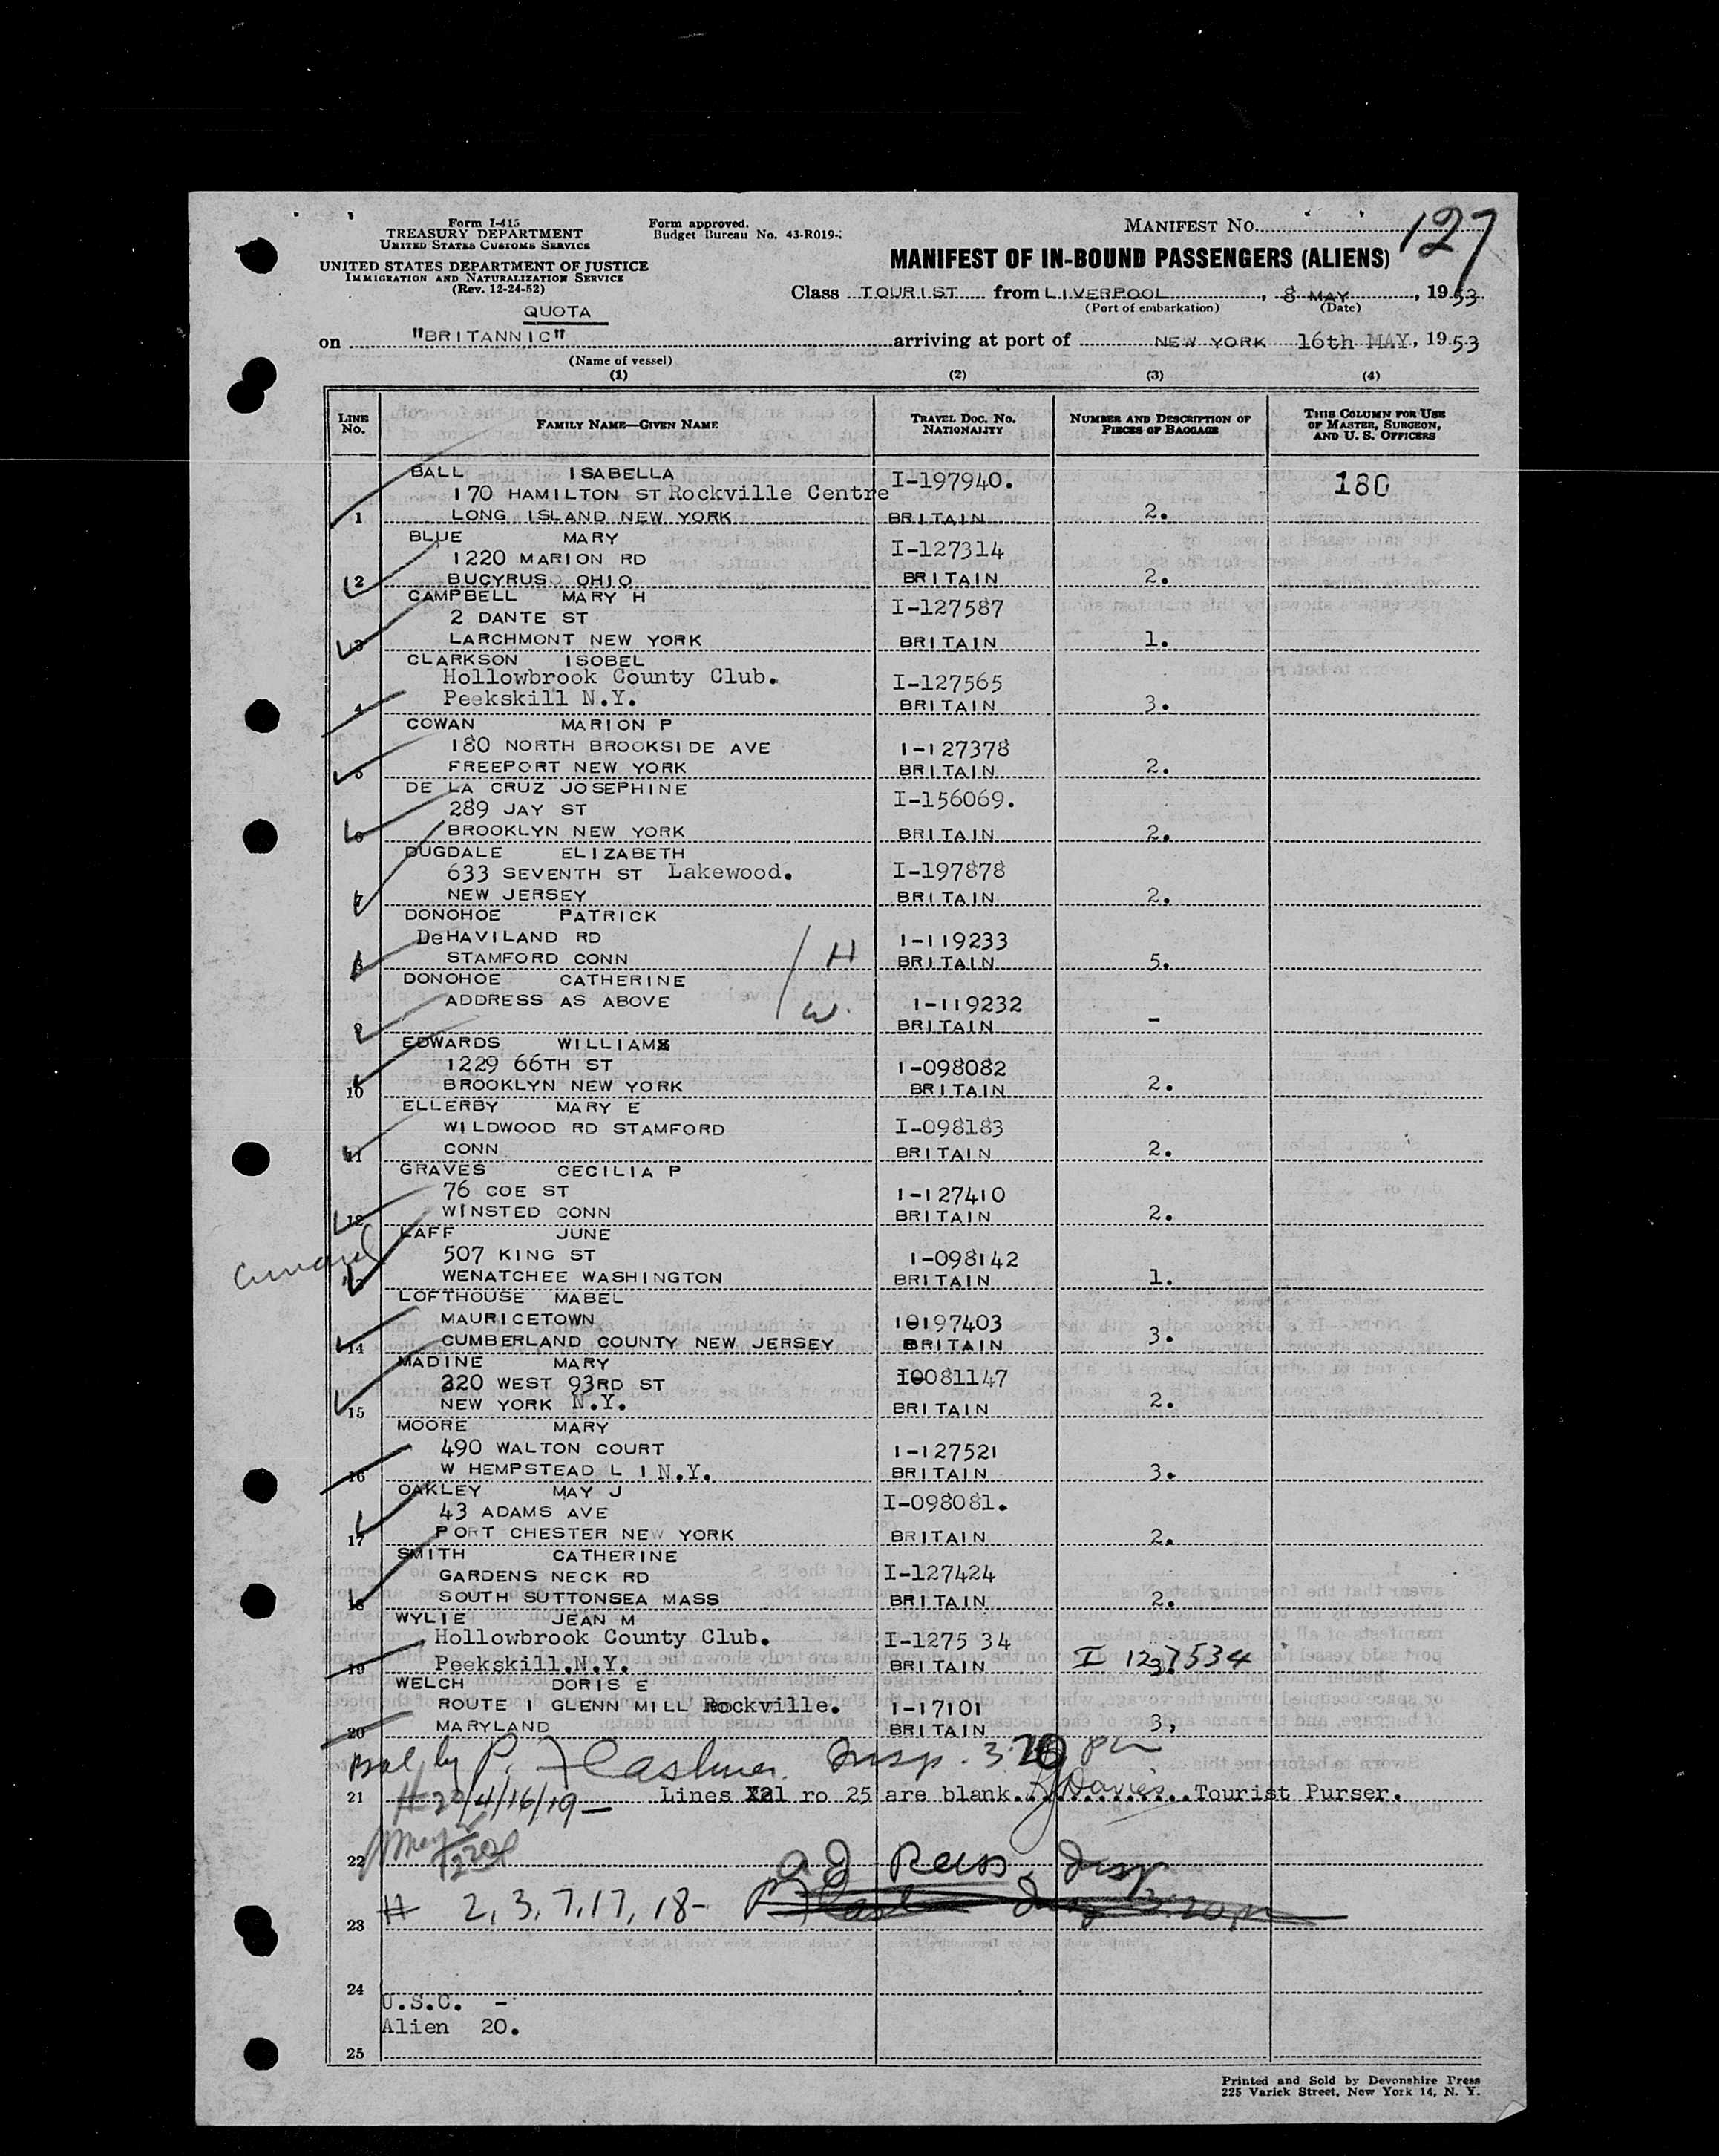 Form I-415
TREASURY DEPARTMENT
UNITED STATES CUSTOMS SERVICE
UNITED STATES DEPARTMENT OF JUSTICE
IMMIGRATION AND NATURALIZATION SERVICE
(Rev. 12-24-52)
Form approved.
Budget Bureau No. 43-R019-
MANIFEST NO. 127
MANIFEST OF IN-BOUND PASSENGERS (ALIENS)
Class TOURIST from LIVERPOOL, 8 MAY, 1953
(Port of embarkation) (Date)
QUOTA
on "BRITANNIC" arriving at port of NEW YORK 16th MAY, 1953
(Name of vessel)
(1) (2) (3) (4)
LINE No. FAMILY NAME—GIVEN NAME TRAVEL DOC. NO. NATIONALITY NUMBER AND DESCRIPTION OF PIECES OF BAGGAGE THIS COLUMN FOR USE OF MASTER, SURGEON, AND U. S. OFFICERS
BALL ISABELLA I-197940. 180
170 HAMILTON ST Rockville Centre
1 LONG ISLAND NEW YORK BRITAIN 2.
BLUE MARY I-127314
1220 MARION RD
2 BUCYRUSO OHIO BRITAIN 2.
CAMPBELL MARY H I-127587
2 DANTE ST
3 LARCHMONT NEW YORK BRITAIN 1.
CLARKSON ISOBEL
Hollowbrook County Club. I-127565
4 Peekskill N.Y. BRITAIN 3.
COWAN MARION P
180 NORTH BROOKSIDE AVE I-127378
5 FREEPORT NEW YORK BRITAIN 2.
DE LA CRUZ JOSEPHINE I-156069.
289 JAY ST
6 BROOKLYN NEW YORK BRITAIN 2.
DUGDALE ELIZABETH
633 SEVENTH ST Lakewood. I-197878
7 NEW JERSEY BRITAIN 2.
DONOHOE PATRICK
DeHAVILAND RD H I-119233
8 STAMFORD CONN BRITAIN 5.
DONOHOE CATHERINE
ADDRESS AS ABOVE W. I-119232
9 BRITAIN -
EDWARDS WILLIAMS
1229 66TH ST I-098082
10 BROOKLYN NEW YORK BRITAIN 2.
ELLERBY MARY E
WILDWOOD RD STAMFORD I-098183
11 CONN BRITAIN 2.
GRAVES CECILIA P
76 COE ST I-127410
12 WINSTED CONN BRITAIN 2.
LAFF JUNE
507 KING ST I-098142
Cunard 13 WENATCHEE WASHINGTON BRITAIN 1.
LOFTHOUSE MABEL
MAURICETOWN I0197403
14 CUMBERLAND COUNTY NEW JERSEY BRITAIN 3.
MADINE MARY
320 WEST 93RD ST I0081147
15 NEW YORK N.Y. BRITAIN 2.
MOORE MARY
490 WALTON COURT I-127521
16 W HEMPSTEAD L I N.Y. BRITAIN 3.
OAKLEY MAY J I-098081.
43 ADAMS AVE
17 PORT CHESTER NEW YORK BRITAIN 2.
SMITH CATHERINE
GARDENS NECK RD I-127424
18 SOUTH SUTTONSEA MASS BRITAIN 2.
WYLIE JEAN M
Hollowbrook County Club. I-1275 34
19 Peekskill.N.Y. BRITAIN 3. I 127534
WELCH DORIS E
ROUTE 1 GLENN MILL Rockville. I-17101
20 MARYLAND BRITAIN 3,
by P. Insp. 3:20 pm
21 #20/4/16/19— Lines 21 ro 25 are blank. J Davies Tourist Purser.
22 Insp
23 # 2, 3, 7, 17, 18- 3:20 pm
24
U.S.C. -
Alien 20.
25
Printed and Sold by Devonshire Press
225 Varick Street, New York 14, N. Y.